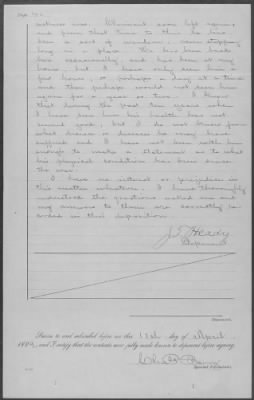 witness was. Claimant soon left again,
and from that time to this he has
been a sort of wanderer, never stopping
long in a place. He has been back
here occasionally, and has been at my
house, but I have only seen him a
few hours, or perhaps a day at a time
and then perhaps would not see him
again for a year or two. I know
that during the past ten years when
I have seen him his health has not
seemed good, but I do not know from
what disease or diseases he may have
suffered and I have not been with him
enough to make a statement as to what
his physical condition has been since
the war.
I have no interest or prejudice in
this matter whatever. I have thoroughly
understood the questions asked me and
my answers to them are correctly re-
corded in this deposition.
J. E. Heady
Deponent.
Deponent.
Sworn to and subscribed before me this 13th day of April,
188, and I certify that the contents were fully made known to deponent before signing.
Special Examiner.